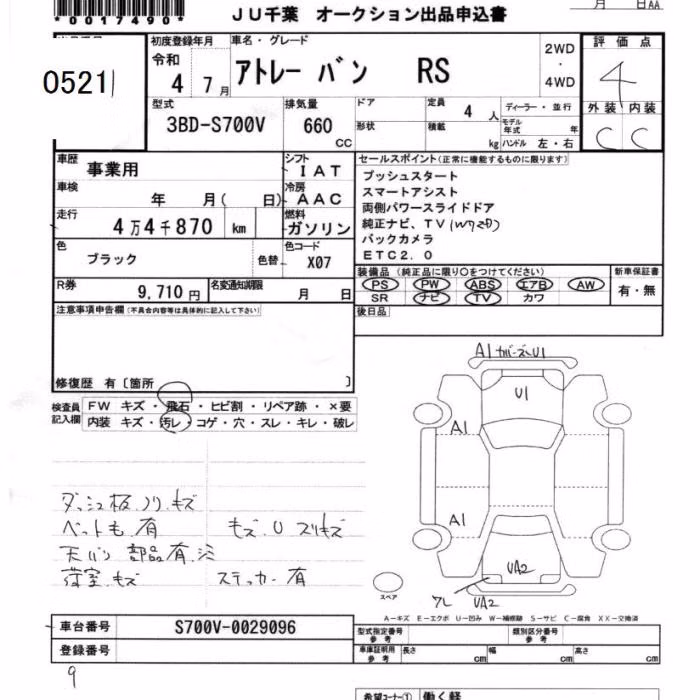 *0017490*
JU千葉 オークション出品申込書
月 日AA
0521
初度登録年月
令和
4 7月
車名・グレード
アトレー バン RS
2WD
・
4WD
評価点
4
外装 内装
C C
型式
3BD-S700V
排気量
660
CC
ドア
形状
定員
4 人
積載
kg
ディーラー・並行
モデル年式 年
ハンドル 左・右
車歴
事業用
シフト
IAT
車検
年 月( 日)
冷房
AAC
走行
4万4千870 km
燃料
ガソリン
色
ブラック
色替
色コード
X07
R券
9,710円
名変通知期限
月 日
セールスポイント(正常に機能するものに限ります)
プッシュスタート
スマートアシスト
両側パワースライドドア
純正ナビ、TV
バックカメラ
ETC2.0
装備品 (純正品に限り○をつけてください)
PS PW ABS エアB AW
SR ナビ TV カワ
新車保証書
有・無
後日品
注意事項申告欄(不具合内容等は具体的に記入して下さい)
修復歴 有〔箇所 〕
検査員記入欄
FW キズ・飛石・ヒビ割・リペア跡・×要
内装 キズ・汚レ・コゲ・穴・スレ・キレ・破レ
ダッシュ板ノリ、キズ
ベットも有 キズ、U スリキズ
天バリ 部品有
荷室キズ ステッカー有
A1 カバーズレU1
U1
A1
A1
UA2
ワレ UA2
スペア
A－キズ E－エクボ U－凹み W－補修跡 S－サビ C－腐食 XX－交換済
車台番号 S700V-0029096
登録番号
9
型式指定番号 参考
類別区分番号 参考
車庫証明用 参考 長さ cm 幅 cm 高さ cm
希望コーナー① 働く軽